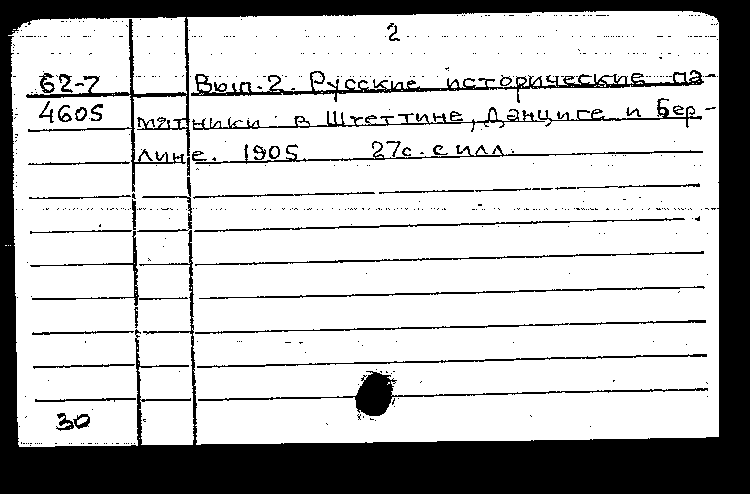 2
62-7 Вып.2. Русские исторические па-
4605 мятники в Штеттине, Данциге и Бер-
лине. 1905 27с. с илл.
30